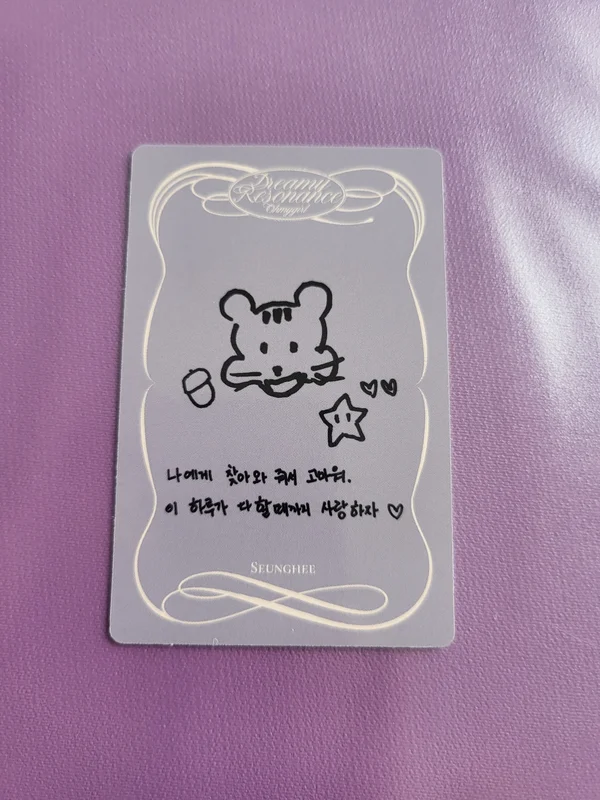 Dreamy
Resonance
Ohmygirl
나에게 찾아와 줘서 고마워.
이 하루가 다 할 때까지 사랑하자 ♡
SEUNGHEE